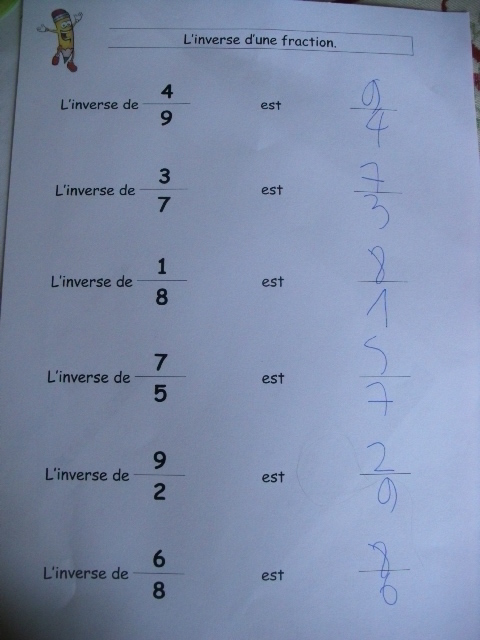 L'inverse d'une fraction.
L'inverse de 4/9 est 9/4
L'inverse de 3/7 est 7/3
L'inverse de 1/8 est 8/1
L'inverse de 7/5 est 5/7
L'inverse de 9/2 est 2/9
L'inverse de 6/8 est 8/6